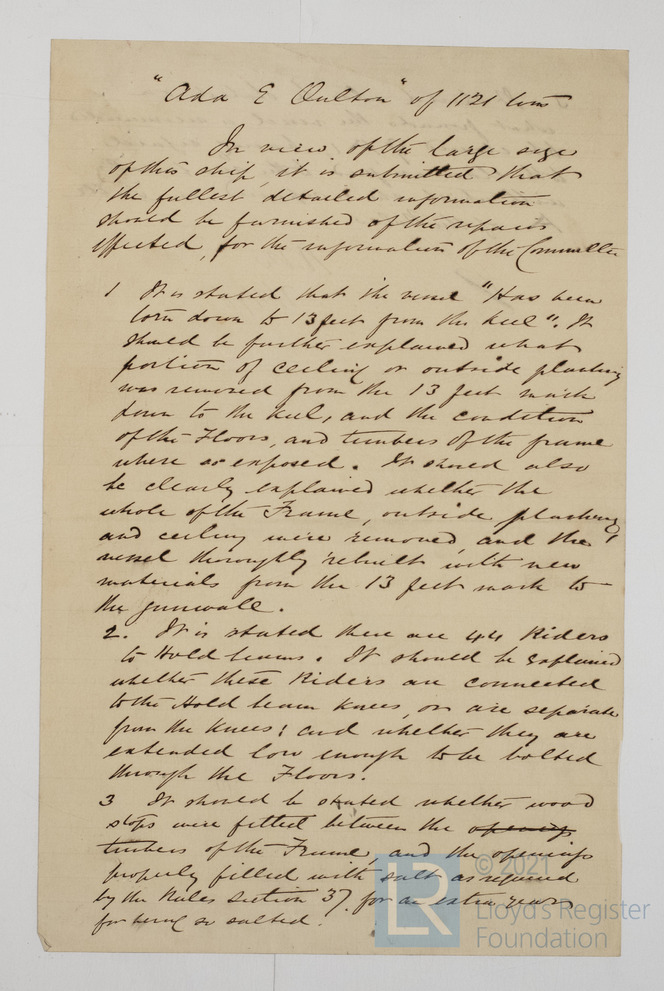 "Ada E Oulton" of 1121 tons
In view of the large size
of this ship, it is submitted that
the fullest detailed information
should be furnished of the repairs
effected, for the information of the Committee
1 It is stated that the vessel "Has been
torn down to 13 feet from the keel". It
should be further explained what
portion of ceiling or outside planking
was removed from the 13 feet mark
down to the keel, and the condition
of the Floors, and timbers of the frame
where so exposed. It should also
be clearly explained whether the
whole of the Frame, outside planking,
and ceiling were removed, and the
vessel thoroughly rebuilt with new
materials from the 13 feet mark to
the gunwale.
2. It is stated there are 44 Riders
to Hold beams. It should be explained
whether these Riders are connected
to the Hold beam knees, or are separate
from the knees; and whether they are
extended low enough to be bolted
through the Floors.
3 It should be stated whether wood
stops were fitted between the openings
timbers of the Frame, and the openings
properly filled with salt as required
by the Rules section 37. for an extra year
for being so salted.
© 2021
LR
Lloyd's Register
Foundation